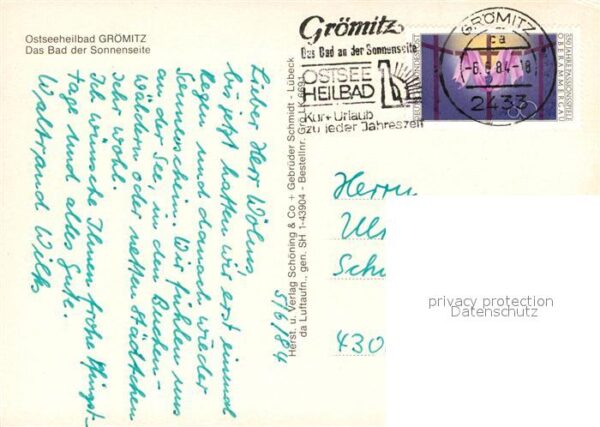 Ostseeheilbad GRÖMITZ
Das Bad der Sonnenseite
Lieber Herr Wölms,
bis jetzt hatten wir erst einmal
Regen und danach wieder
Sonnenschein. Wir fühlen uns
an der See, in den Buchen-
wäldern oder netten Städtchen
sehr wohl.
Ich wünsche Ihnen frohe Pfingst-
tage und alles Gute.
Waltraud Wilks
5/6/84
Herst. u. Verlag Schöning & Co + Gebrüder Schmidt - Lübeck
da Luftaufn., gen. SH 1-43904 - Bestellnr. Gro LK
Grömitz
Das Bad an der Sonnenseite
OSTSEE
HEILBAD
Kur + Urlaub
zu jeder Jahreszeit
GRÖMITZ
ca
-6.6.84-18
2433
350 JAHRE PASSIONSSPIELE
OBERAMMERGAU
DEUTSCHE BUNDESPOST
Herrn
Ul
Sch
430
privacy protection
Datenschutz